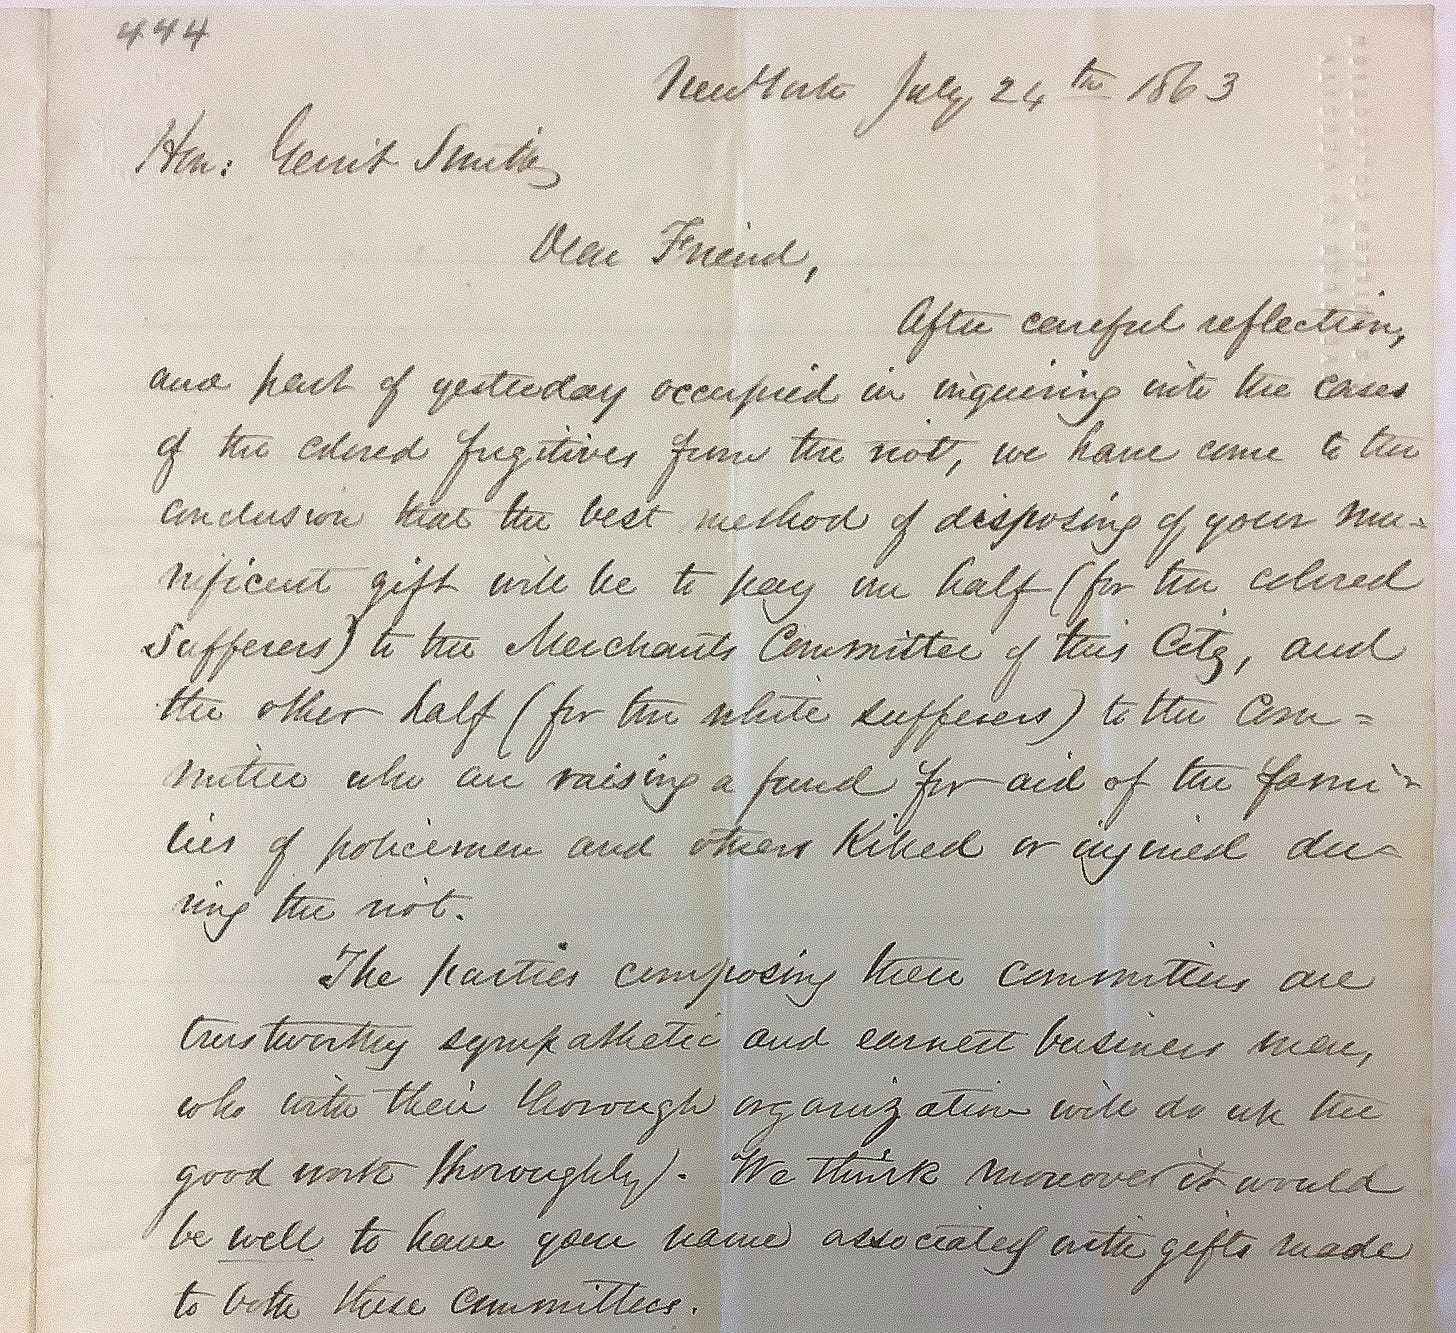 444
New York July 24th 1863
Hon: Gerrit Smith
Dear Friend,
After careful reflection,
and part of yesterday occupied in inquiring into the cases
of the colored fugitives from the riot, we have come to the
conclusion that the best method of disposing of your mu-
nificent gift will be to pay one half (for the colored
sufferers) to the Merchants Committee of this City, and
the other half (for the white sufferers) to the Com=
mittee who are raising a fund for aid of the fami-
lies of policemen and others killed or injured du-
ring the riot.
The parties composing these committees are
trustworthy sympathetic and earnest business men,
who with their thorough organization will do up the
good work thoroughly. We think moreover it would
be well to have your name associated with gifts made
to both these committees.